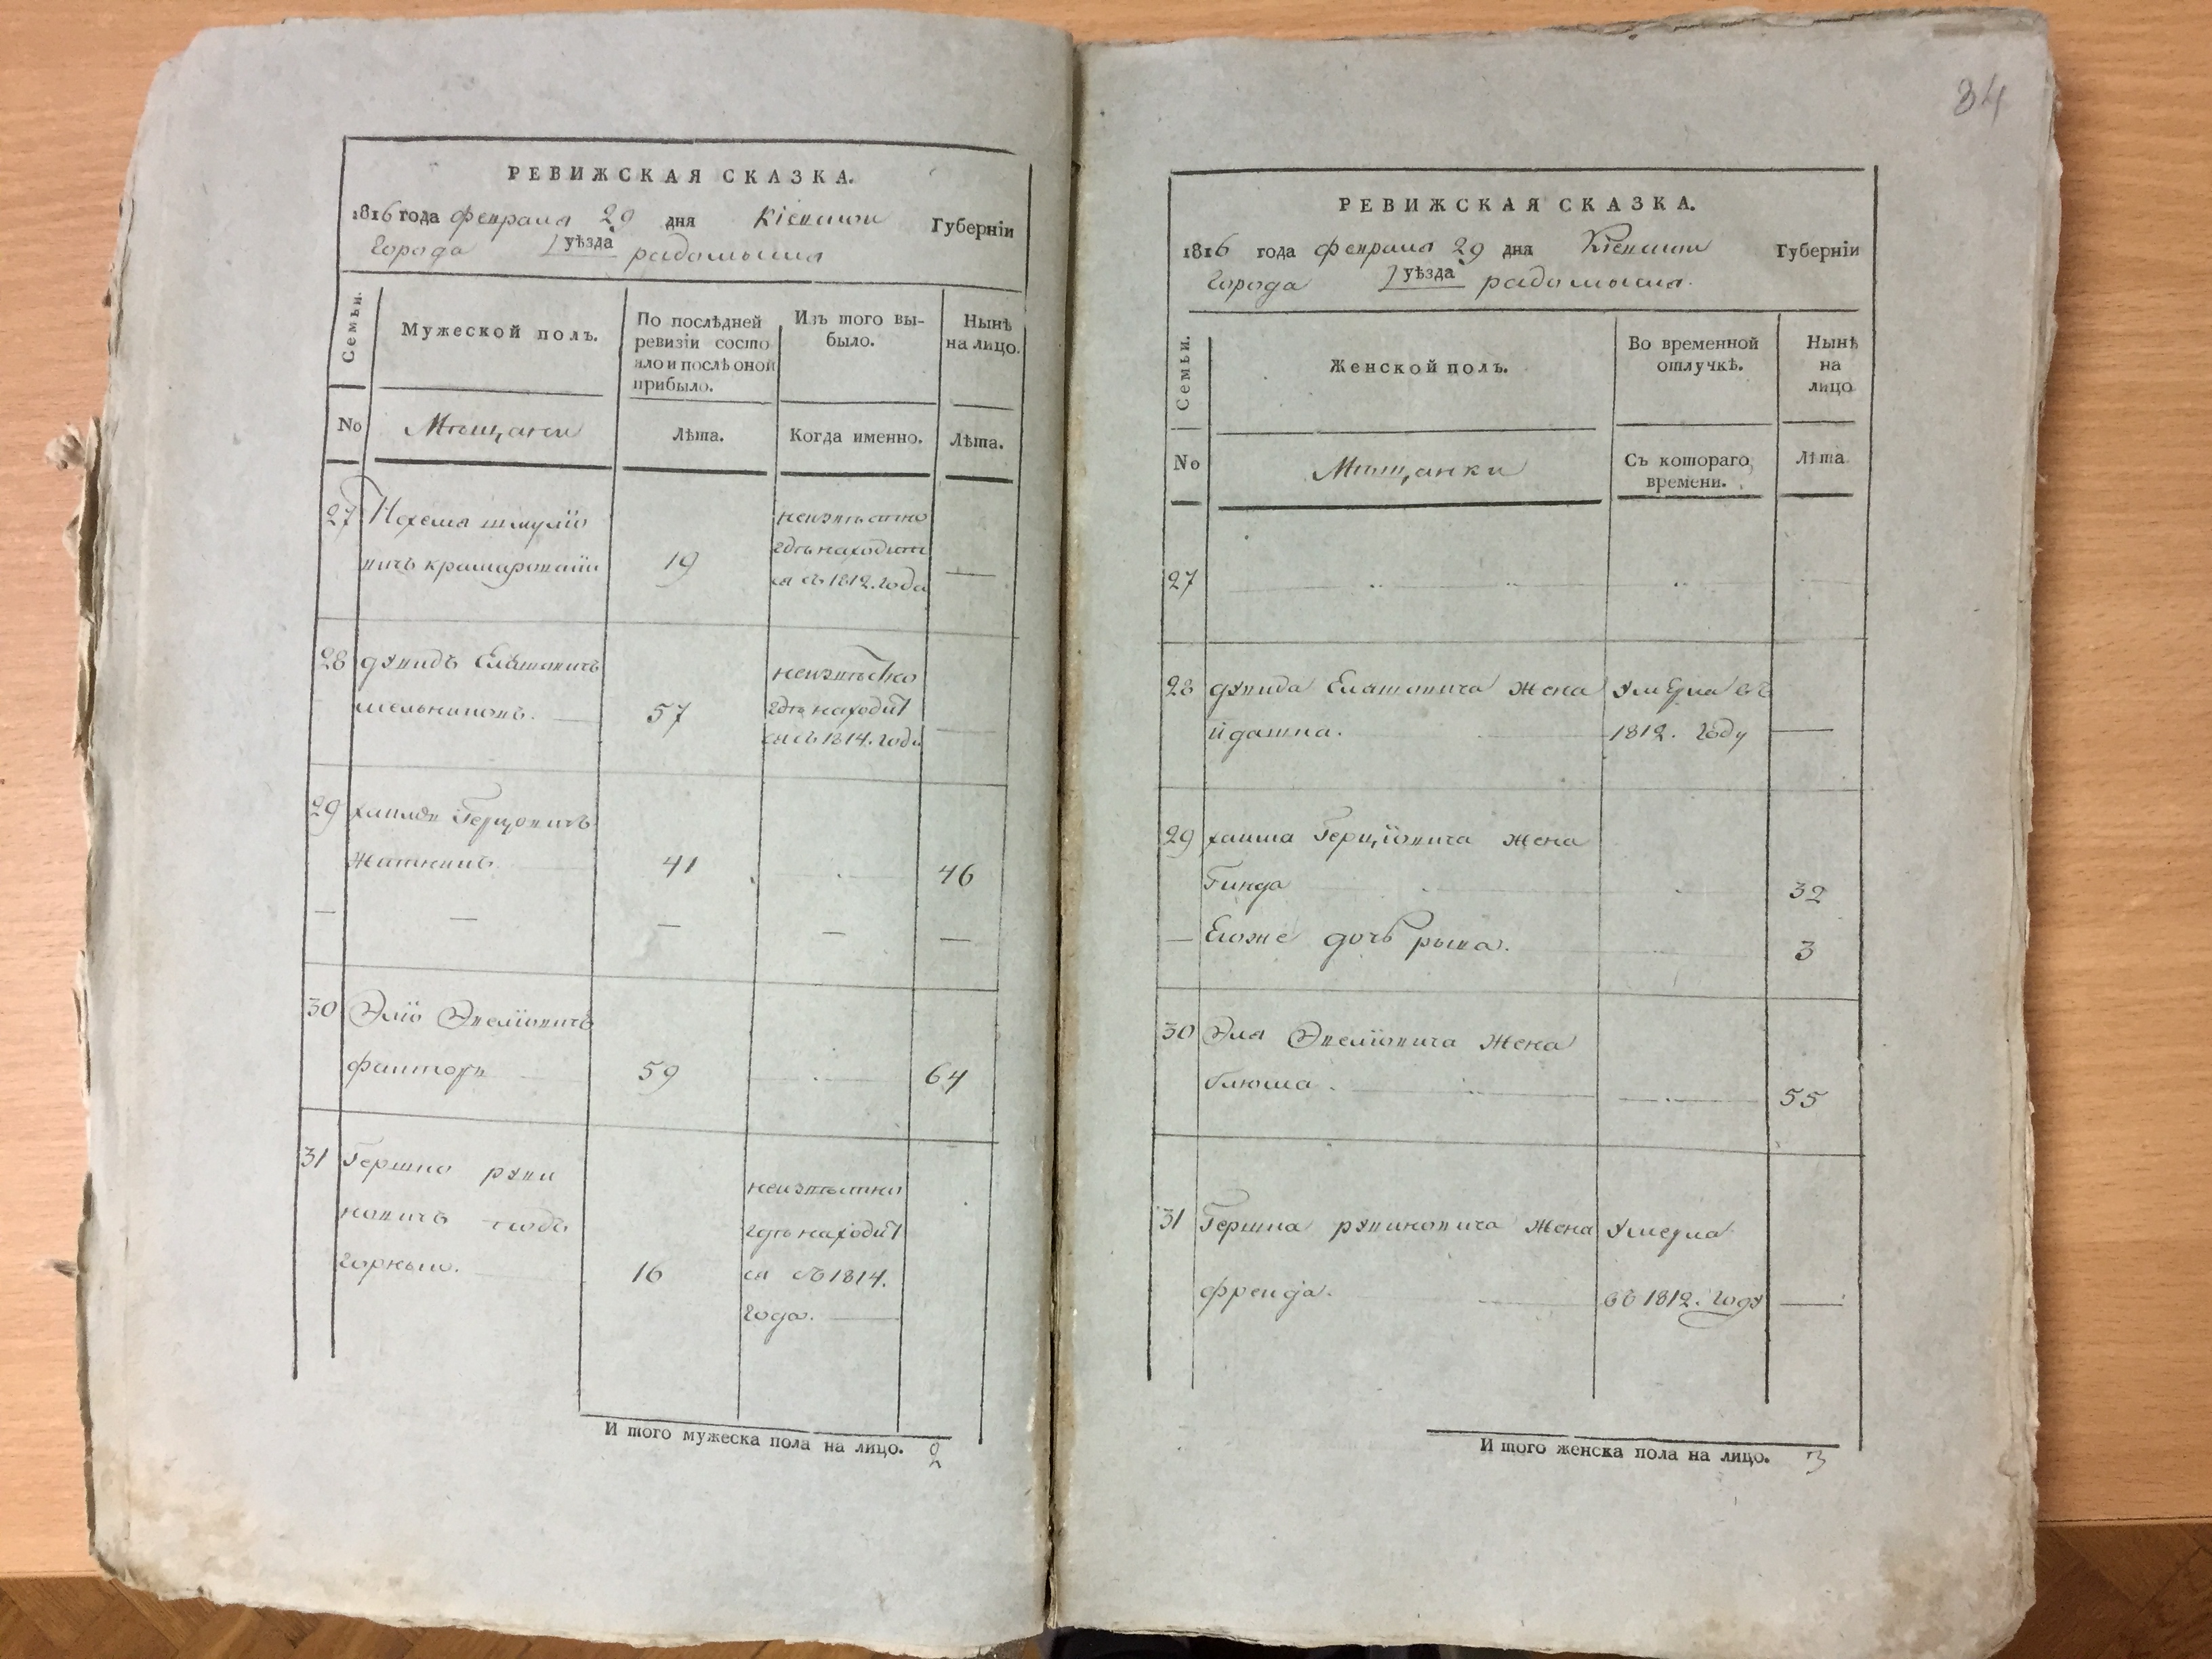 РЕВИЖСКАЯ СКАЗКА.
1816 года февраля 29 дня Кіевской Губерніи
города уѣзда радомысля
Семьи.
Мужеской полъ.
По послѣдней
ревизіи состо
яло и послѣ оной
прибыло.
Изъ того вы-
было.
Нынѣ
на лицо.
No
Мѣщане
Лѣта.
Когда именно.
Лѣта.
27 Нохема шмулїо
вичъ 19
неизвѣстно
гдѣ находит
ся съ 1812. года
28 дувидъ
57
неизвѣстно
гдѣ находит
ся съ 1814. года
29 хаимъ Герцовичъ
41 46
30 Элїо Эвелїовичъ
факторъ 59 64
31 Гершко руви
новичъ
16
неизвѣстно
гдѣ находит
ся съ 1814.
года.
И того мужеска пола на лицо. 2
34
РЕВИЖСКАЯ СКАЗКА.
1816 года февраля 29 дня Кіевской Губерніи
города уѣзда радомысля.
Семьи.
Женской полъ.
Во временной
отлучкѣ.
Нынѣ
на
лицо
No
Мѣщанки
Съ котораго
времени.
Лѣта
27
28 дувида жена умерла въ
1812. году
29 хаима Герцїовича жена
Гинда 32
Егоже дочь рыва. 3
30 Эля Эвелїовича жена
блюма. 55
31 Гершка рувиновича жена умерла
фрейда. въ 1812. году
И того женска пола на лицо. 3